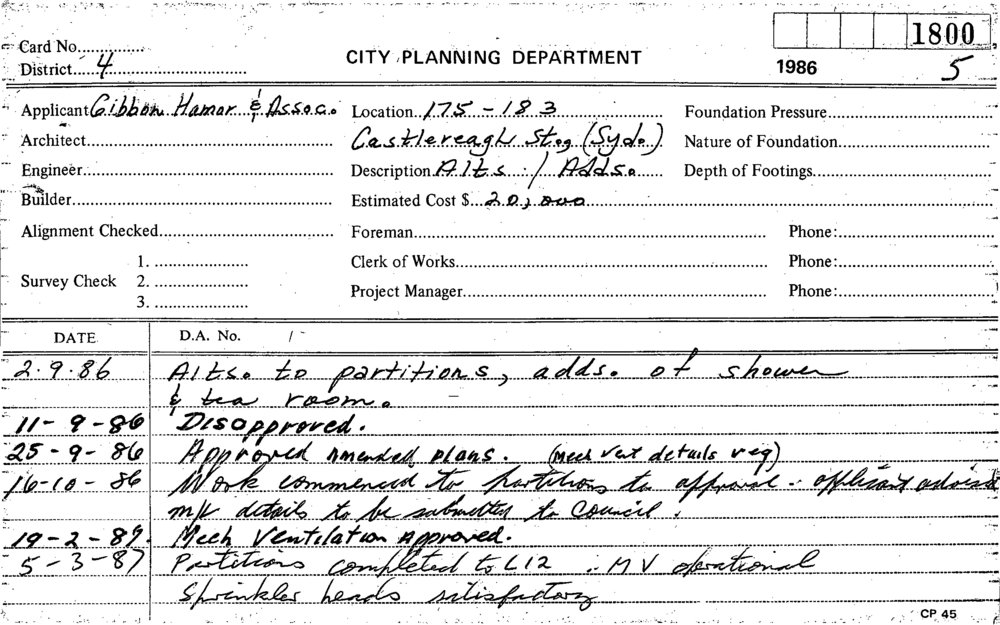 Card No............... 1800
District.....4............................. CITY PLANNING DEPARTMENT 1986 5
Applicant Gibbon Hamor & Assoc. Location..175 - 183 Foundation Pressure
Architect Castlereagh St., (Syd.) Nature of Foundation
Engineer Description Alts. / Adds. Depth of Footings
Builder Estimated Cost $ 20,000
Alignment Checked Foreman Phone:
1. Clerk of Works Phone:
Survey Check 2.
Project Manager Phone:
3.
DATE D.A. No. /
2.9.86 Alts. to partitions, adds. of shower
& tea room.
11-9-86 Disapproved.
25-9-86 Approved Amended plans. (mech vent details req)
16-10-86 Work commenced to partitions to approval - applicant advised
m/v details to be submitted to Council.
19-2-87. Mech Ventilation Approved.
5-3-87 Partitions completed to L12 . MV operational
Sprinkler heads satisfactory
CP 45